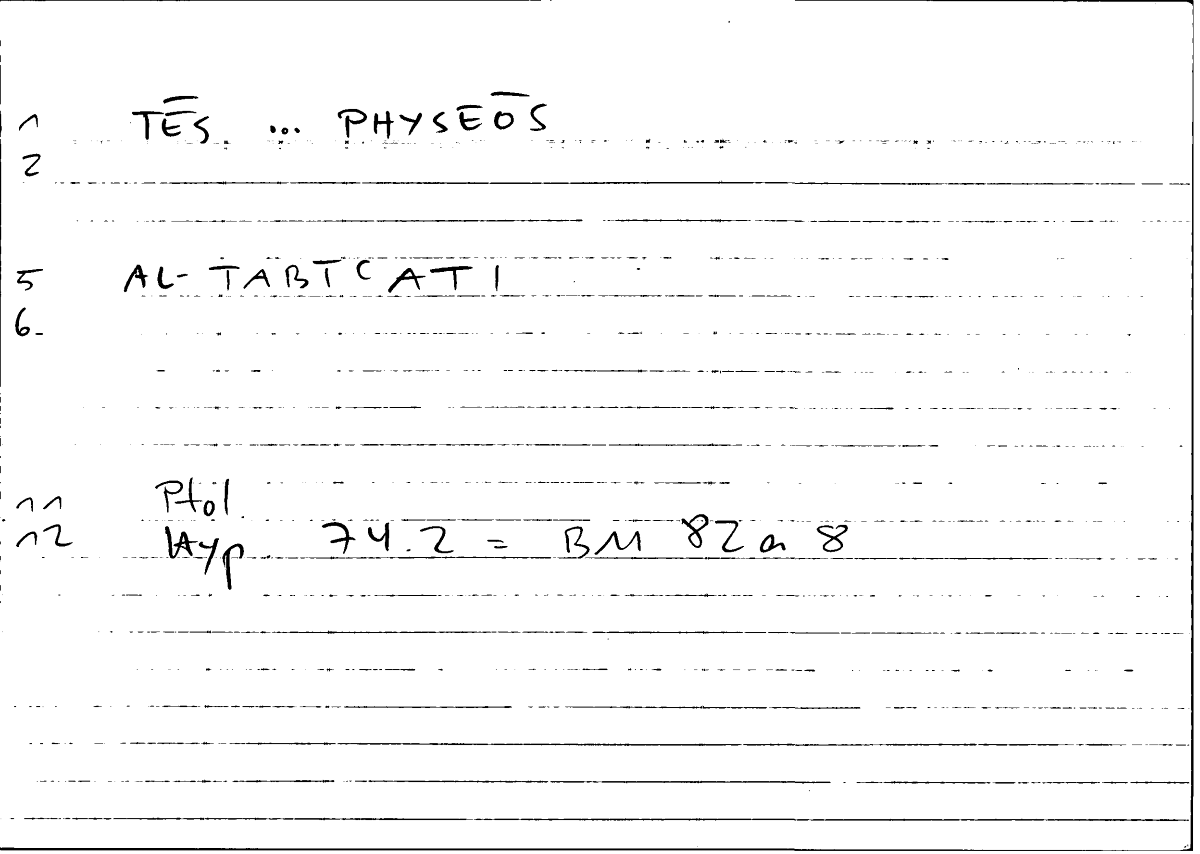 1 TĒS ... PHYSEŌS
2
5 AL-TABĪCATI
6.
11 Ptol.
12 Hyp. 74.2 = BM 82a 8